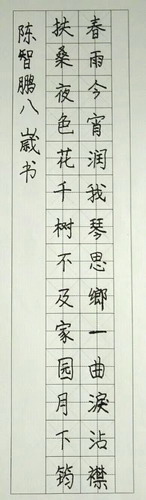 春雨今宵润我琴思鄉一曲淚沾襟
扶桑夜色花千树不及家园月下筠
陈智鹏八歲书